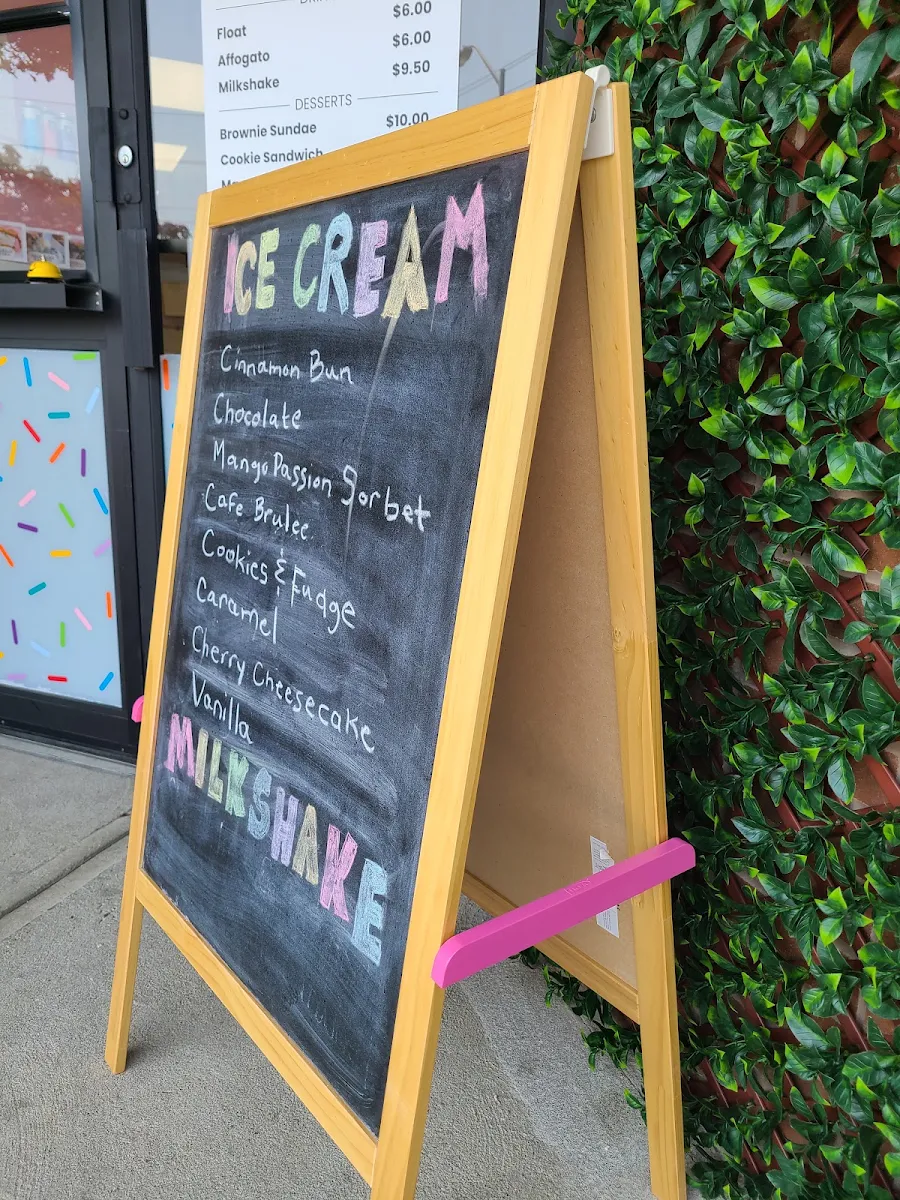 $6.00
Float $6.00
Affogato $6.00
Milkshake $9.50
DESSERTS
Brownie Sundae $10.00
Cookie Sandwich
ICE CREAM
Cinnamon Bun
Chocolate
Mango Passion Sorbet
Cafe Brulee
Cookies & Fudge
Caramel
Cherry Cheesecake
Vanilla
MILKSHAKE